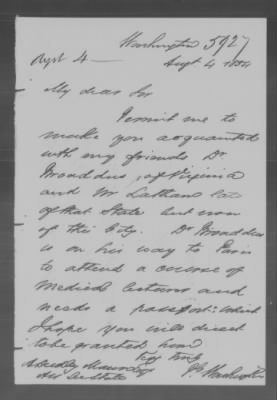 Washington 5927
Aug 4 1854
Augt 4
My dear Sir
Permit me to
make you acquainted
with my friends Dr
Broaddus, of Virginia
and Mr Latham late
of that State but now
of this City. Dr Broaddus
is on his way to Paris
to attend a course of
Medical Lectures and
needs a passport: which
I hope you will direct
to be granted him
Very truly